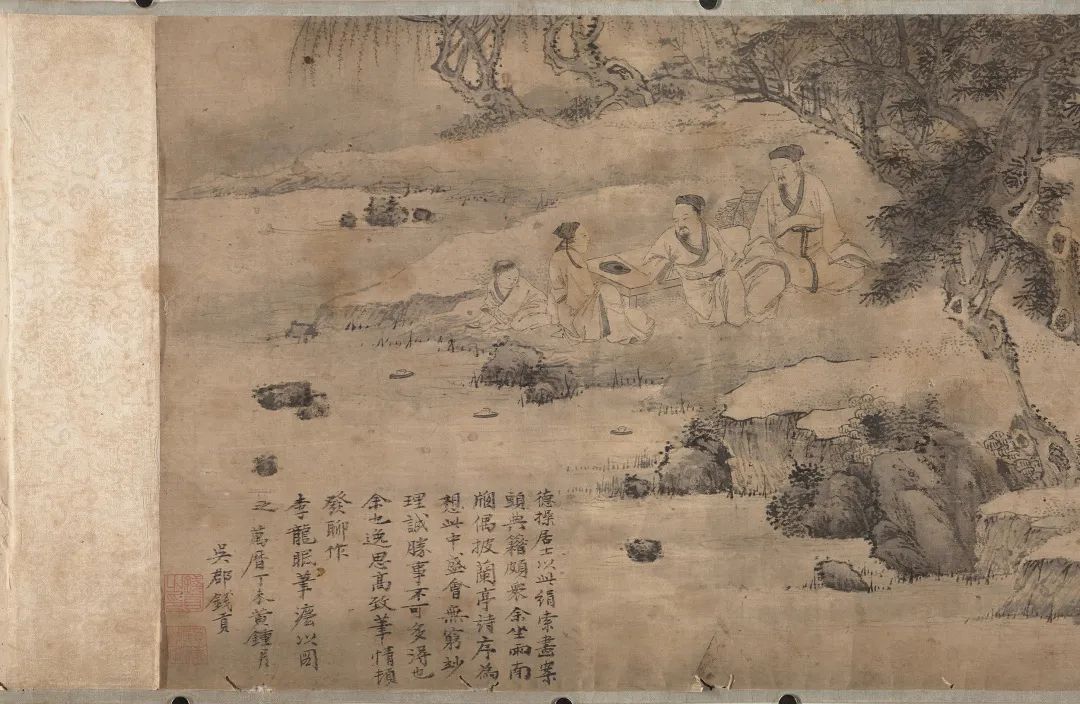 德操居士以此絹索畫案
頭典籍頗衆余坐雨南
牕偶披蘭亭詩序為
想此中盛會無窮妙
理誠勝事不可多得也
余也逸思高致筆情頓
發聊作
李龍眠筆灋以圖
之 萬曆丁未黃鍾月
吳郡錢貢